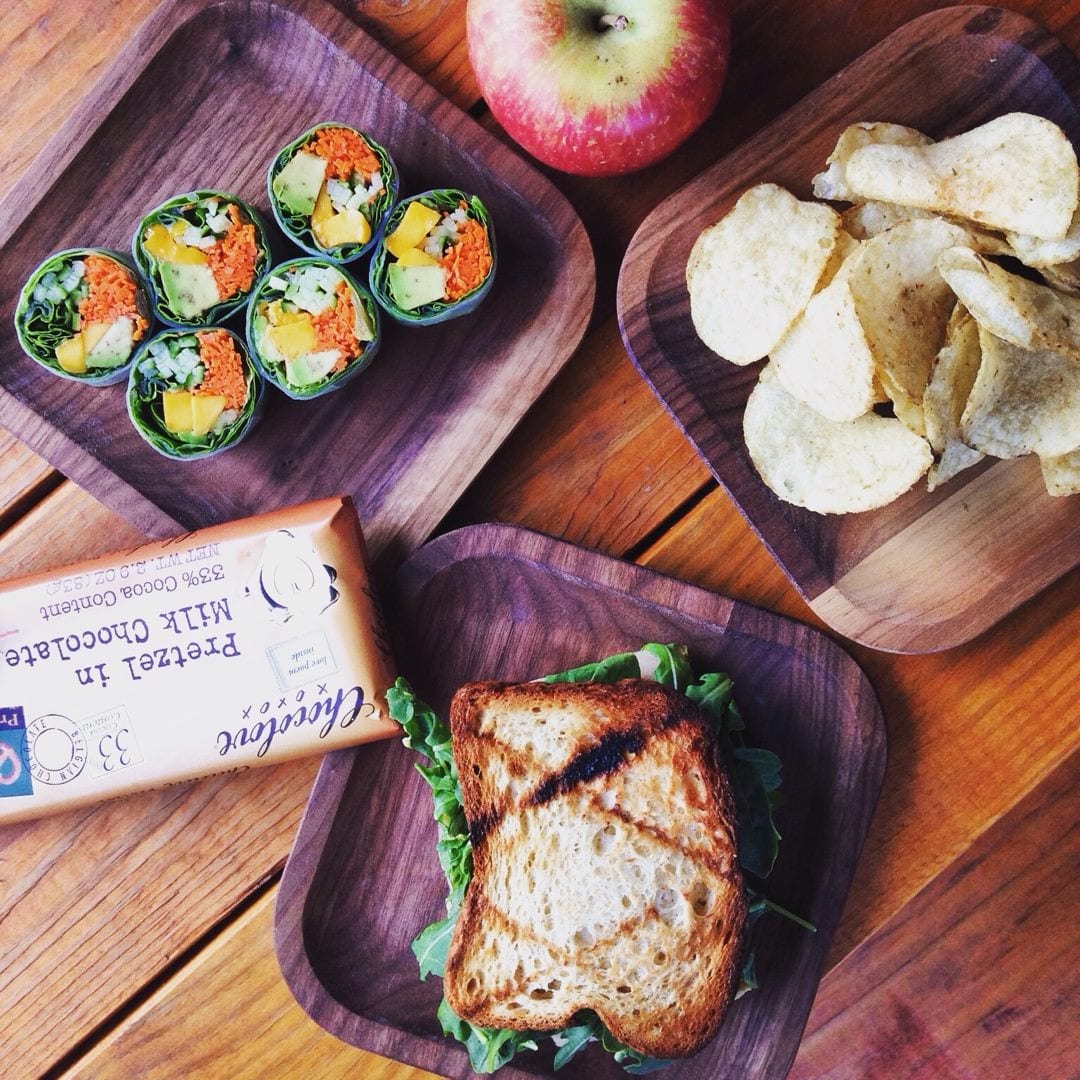 Chocolove
xoxox
love poem
inside
33
Cocoa
Content
BELGIAN CHOCOLATE
Pretzel in
Milk Chocolate
33% Cocoa Content
NET WT. 2.9 OZ (83g)